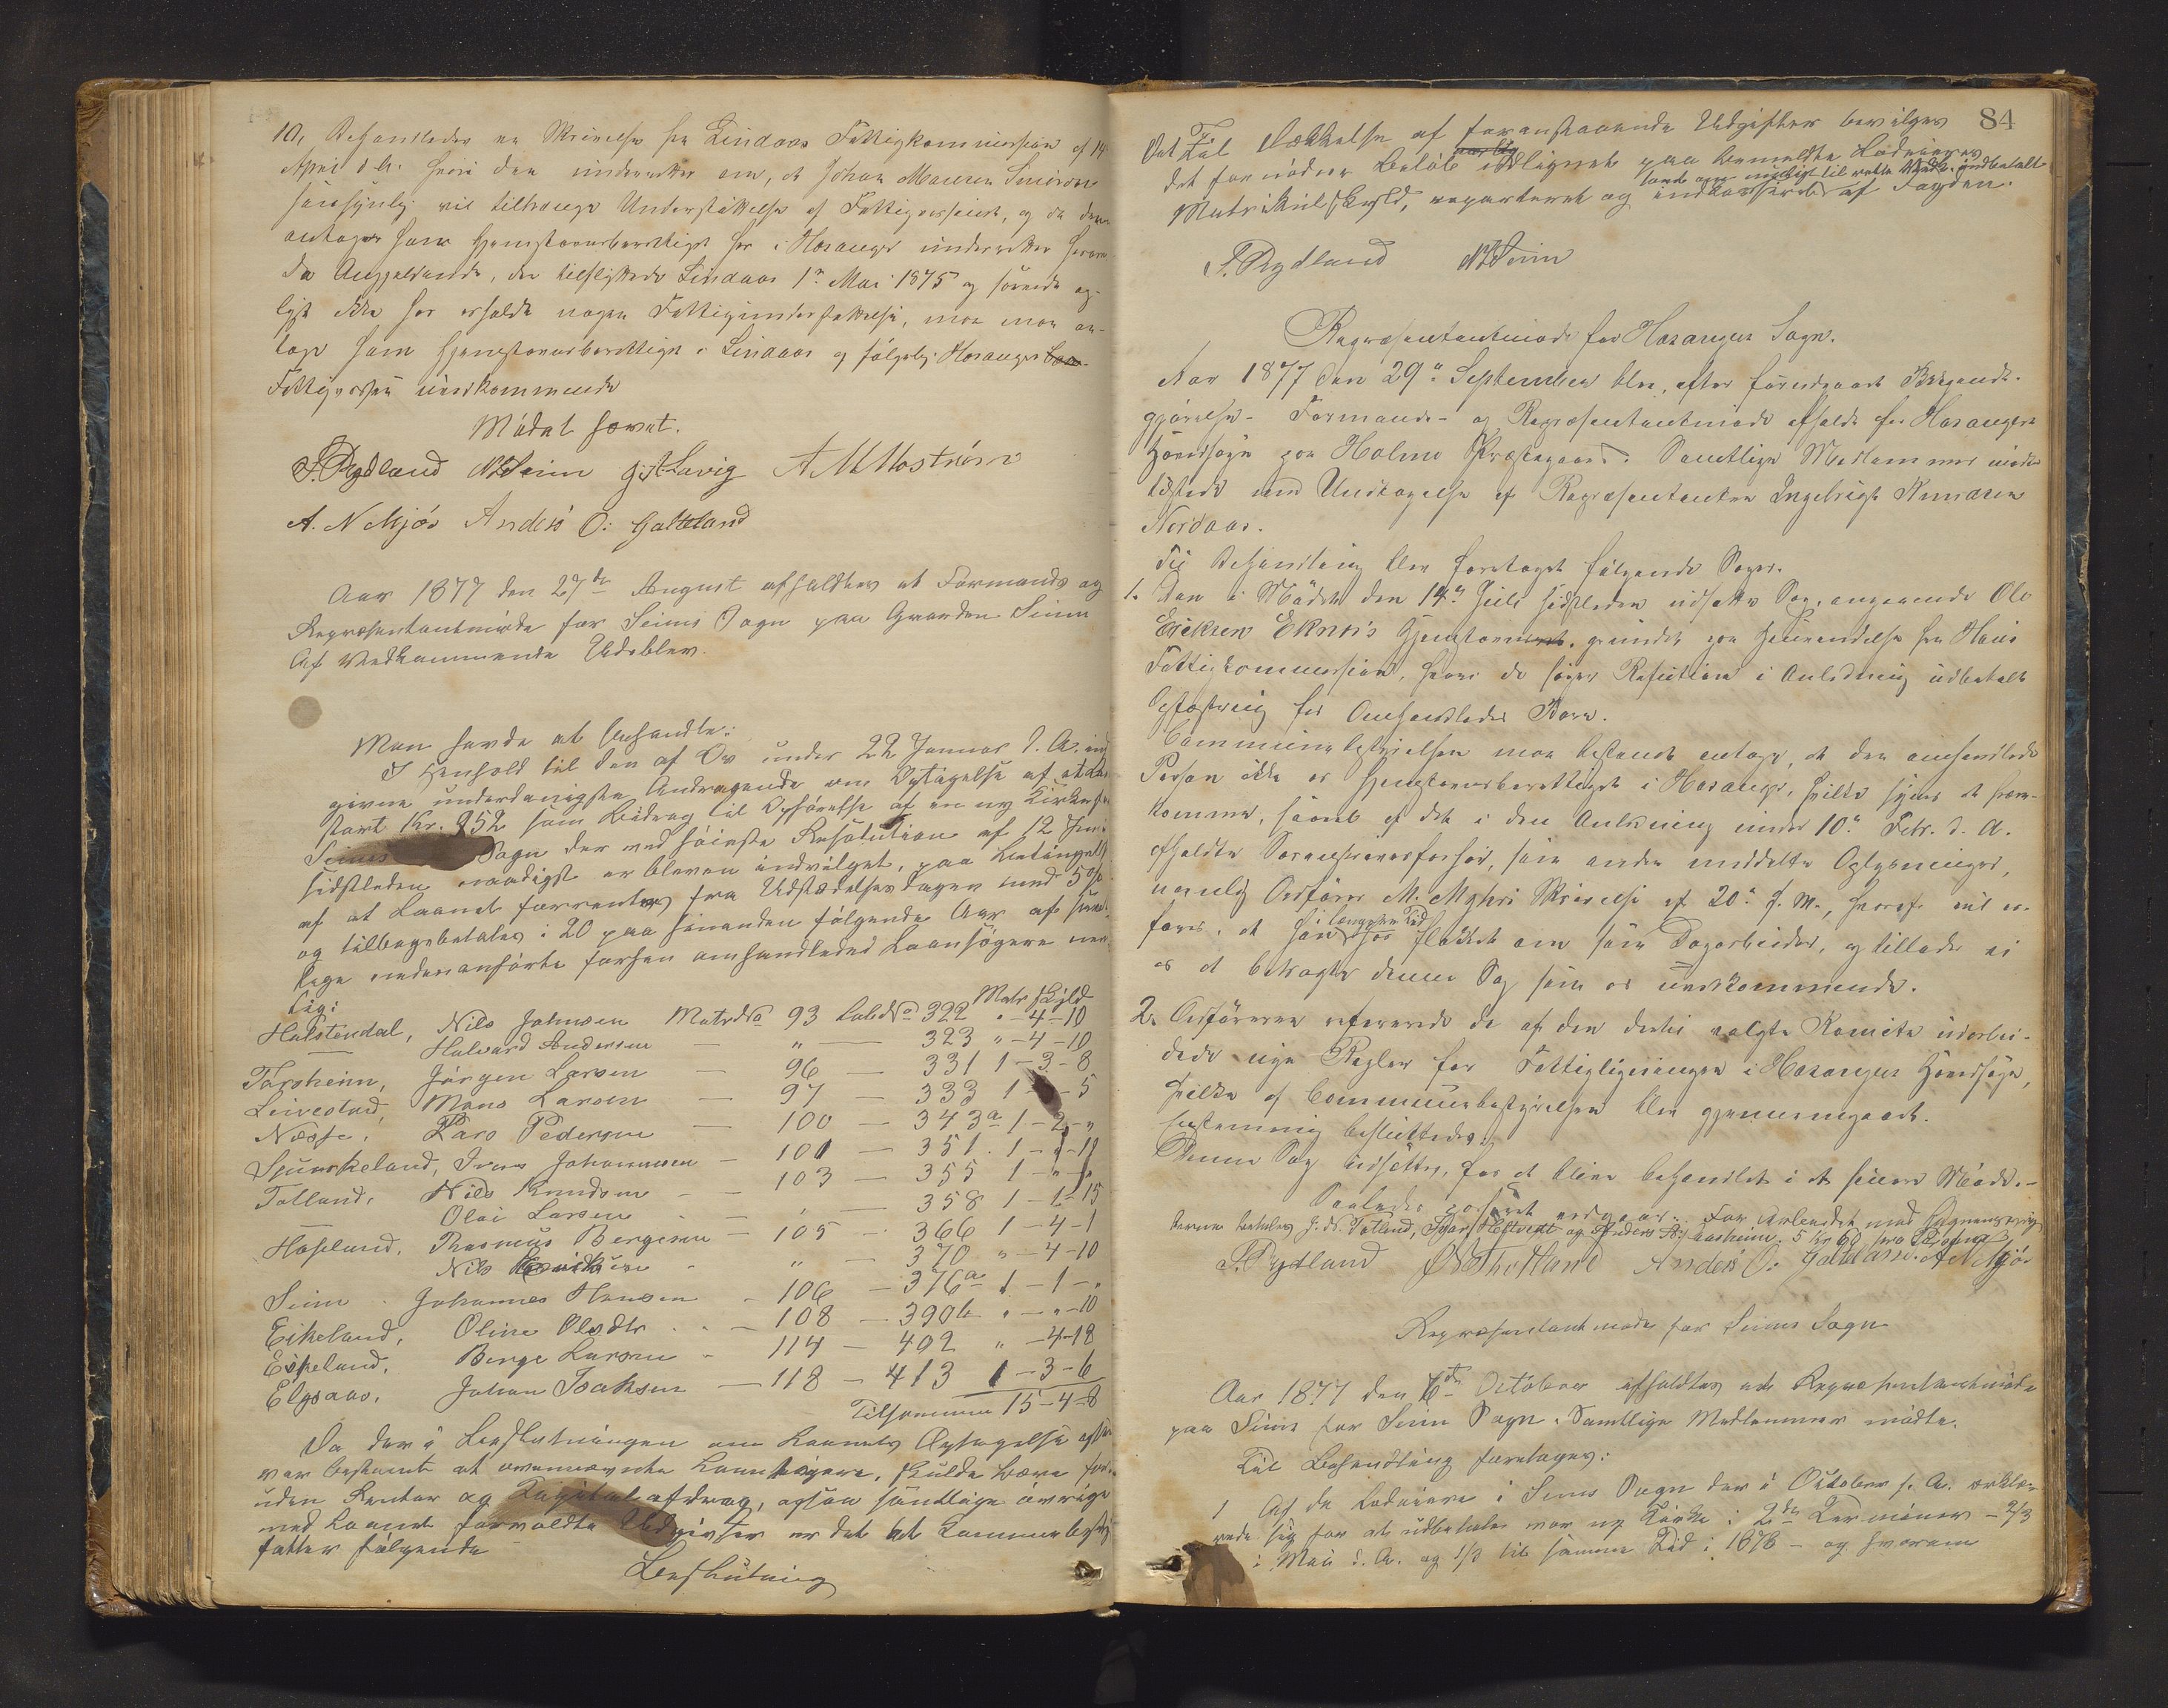 10, Behandledes en Skrivelse fra Lindaas Fattigkommission af 14
April d. A. hvori den underretter om, at Johan Monsen Smione
sandsynlig vil tiltrænge Understøttelse af Fattigvæsenet, og da denne
antages som hjemstavnsberettiget her i Hosanger underrettes herom
Da Angjældende, der tilflyttede Lindaas 1ste Mai 1875 og saavidt og-
lyst ikke har erholdt nogen Fattigunderstøttelse, maa man an-
tage ham hjemstavnsberettiget i Lindaas og følgelig Hosanger
Fattigvæsen uvedkommende
Mødet hævet.
S. Rydland N Seim A M Mostrøm
A. N Mjøs Anders O: Galteland
Aar 1877 den 27de August afholdtes et Formands og
Repræsentantmøde for Seims Sogn paa Gaarden Seim
Af Vedkommende Udeblev.
Man havde at behandle:
I Henhold til den af Os under 22 Januar d. A. ind
givne underdanigste Andragende om Optagelse af et Laan
stort Kr. 952 som Bidrag til Opførelse af en ny Kirke for
Seims Sogn der ved høieste Resolution af 12 Juni
sidstleden naadigst er bleven indvilget, paa Betingelse
af at Laanet forrentes fra Udstædelses Dagen med 5 %
og tilbagebetales i 20 paa hinanden følgende Aar af samt-
lige nedenanførte forhen omhandlede Laansøgere nem-
lig:
Matr Skyld
Halstendal, Nils Johnsen MatrNo 93 LøbeNo 322 " - 4 - 10
Halvard Andersen — " — 323 " - 4 - 10
Torsheim, Jørgen Larsen — 96 — 331 1 - 3 - 8
Leivestad, Mons Larsen — 97 — 333 1 - 5
Næsse, Lars Pedersen — 100 — 343a 1 - 2 - "
Spurkeland, Ivar Johannesen — 101 — 351 1 - 1 - 11
Totland, Nils Knudsen — 103 — 355 1 - " - "
Olai Larsen — " — 358 1 - 1 - 15
Hopland, Rasmus Bergesen — 105 — 366 1 - 4 - 1
Nils — " — 370 " - 4 - 10
Seim Johannes Hansen — 106 — 376a 1 - 1 - "
Eikeland, Oline Olsdtr — 108 — 390b " - " - 10
Espeland, Berge Larsen — 114 — 402 " - 4 - 18
Elsaas, Johan Isaksen — 118 — 413 1 - 3 - 6
Tilsammen 15 - 4 - 8
Da der i Beslutningen om Laanets Optagelse
var bestemt at ovennævnte Laansøgere, skulde bære for-
uden Renter og Kapitalafdrag, ogsaa samtlige øvrige
med Laanet forvoldte Udgivter er det at Kommunebesty
fatter følgende
Beslutning
84
Til Dækkelse af foranstaaende Udgifter bevilges
det fornødne Beløb udlignet paa bemeldte Lodeieres
Matrikulskyld, repartered og indkasseret af Fogden.
S. Rydland N Seim
Repræsentantmøde for Hosanger Sogn.
Aar 1877 den 29de September blev, efter forudgaaet Bekjendt-
gjørelse Formands- og Repræsentantmøde afholdt for Hosanger
Hovedsogn paa Holme Præstegaard. Samtlige Medlemmer vare
tilstede med Undtagelse af Repræsentanten Ingebrigt Knudsen
Nordaas.
Til Behandling blev foretaget følgende Sager.
1. Den i Mødet den 14de Juli sidstleden udsatte Sag, angaaende Ole
Eriksen Eknes's Hjemstavn, grundet paa Henvendelse fra Haus
Fattigkommission, hvori de søger Refusion i Anledning udbetalt
Opfostring for Omhandledes Barn.
Communebestyrelsen maa bestemt antage, at den omhandlede
Person ikke er hjemstavnsberettiget i Hosanger, hvilket synes at frem-
komme, saavel af det i den Anledning under 10de Febr. d. A.
afholdte Forsørgelsesforhør, som andre meddelte Oplysninger,
navnlig Ordfører M. Myhres Skrivelse af 20de d. M., hvoraf vil er-
fares, at han i længere Tid har flakket om som Dagarbeider, og tillader vi
os at betragte denne Sag som os uvedkommende.
2. Ordføreren refererede de af den dertil valgte Komite udarbei-
dede nye Regler for Fattigligningen i Hosanger Hovedsogn,
hvilke af Communebestyrelsen blev gjennemgaaet.
Enstemmig besluttedes:
Denne Sag udsættes, for at blive behandlet i et senere Møde.-
S. Rydland Ø Thotland Anders O: Galteland. A N Mjøs
Repræsentantmøde for Seims Sogn
Aar 1877 den 6te October afholdtes et Repræsentantmøde
paa Seim for Seim Sogn. Samtlige Medlemmer mødte.
Til Behandling foretages:
1 Af de Lodeiere i Seims Sogn der i October f. A. erklæ-
rede sig for at udbetale vor ny Kirke i 2de Terminer - 2/3
i Mai d. A. og 1/3 til samme Tid i 1878 - og hvorom